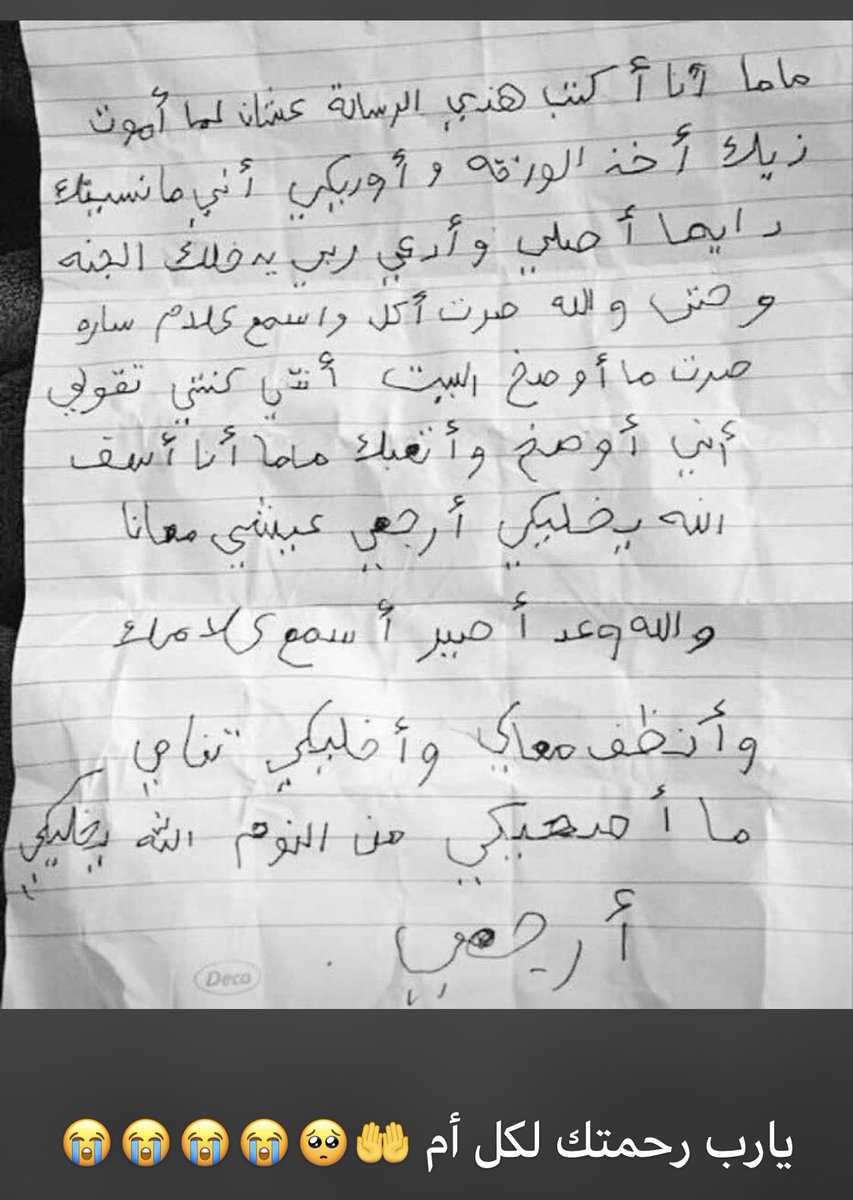 ماما أنا أكتب هذي الرسالة عشان لما أموت
زيك أخذ الورقه و أوريكي أني ما نسيتك
دايما أصلي وأدعي ربي يدخلك الجنه
وحتى والله صرت أكل واسمع كلام ساره
صرت ما أوصخ البيت أنتي كنتي تقولي
أني أوصخ وأتعبك ماما أنا أسف
الله يخليكي أرجعي عيشي معانا
والله وعد أصير أسمع كلامك
وأنظف معاكي وأخليكي تنامي
ما أصحيكي من النوم الله يخليكي
أرجعي
Deco
يارب رحمتك لكل أم 🤲🥺😭😭😭😭